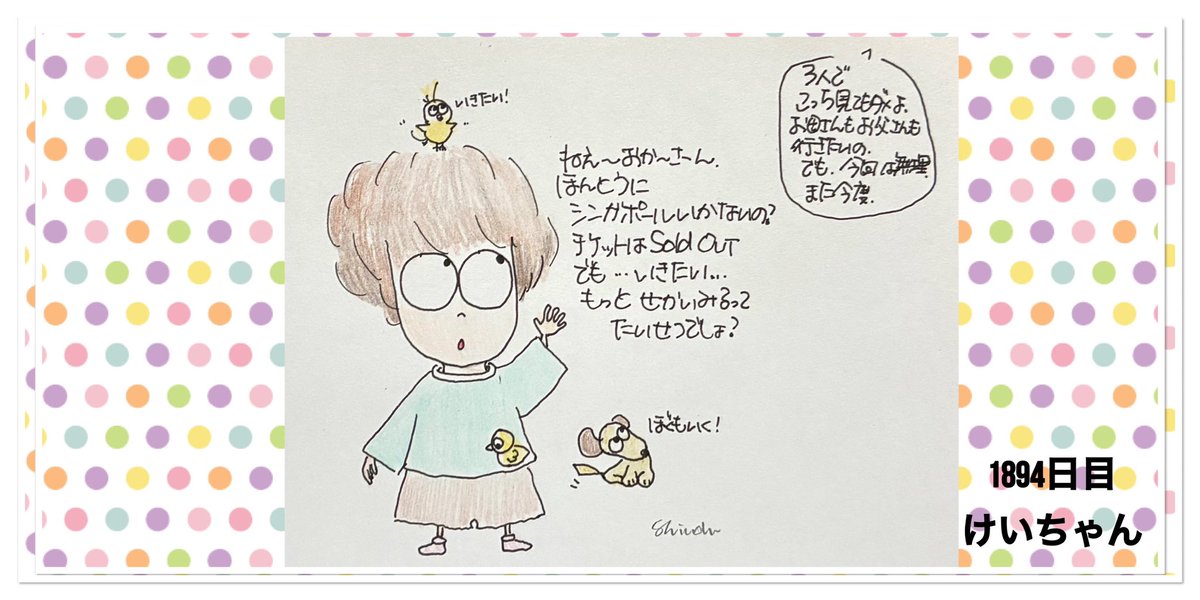 いきたい!
ねえ〜おか〜さーん.
ほんとうに
シンガポールいかないの?
チケットは Sold OUT
でも…いきたい…
もっと せかいみるって
たいせつでしょ?
3人で
こっち見てもダメよ.
お母さんもお父さんも
行きたいの.
でも、今回は無理.
また今度.
ぼくもいく!
1894日目
けいちゃん